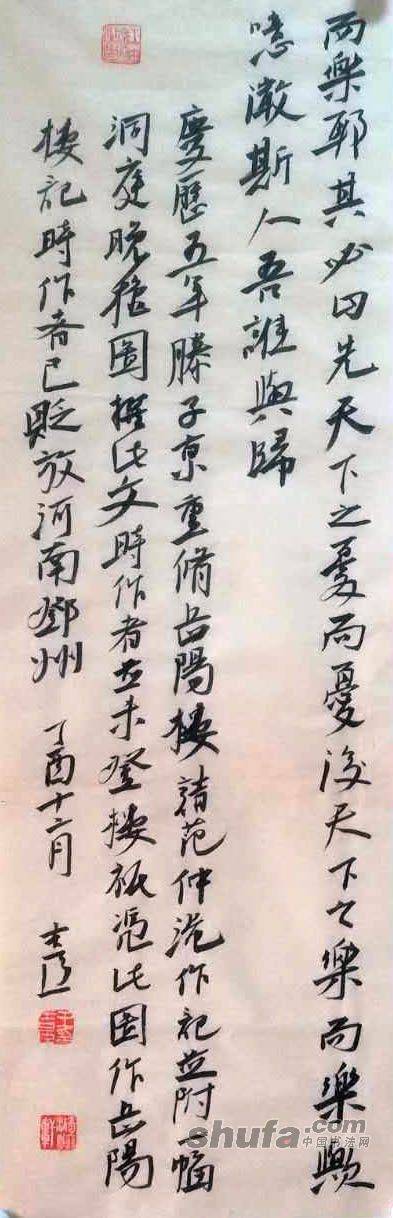 而樂耶其必曰先天下之憂而憂後天下之樂而樂歟
噫微斯人吾誰與歸
慶歷五年滕子京重脩岳陽樓請范仲淹作記並附一幅
洞庭晚秋圖撰此文時作者並未登樓祇憑此圖作岳陽
樓記時作者已貶放河南鄧州
丁酉十二月
shufa.com
中国书法网